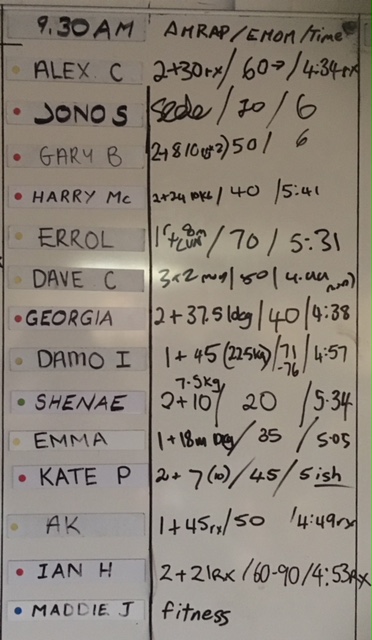 9.30AM AMRAP/EMOM/Time
ALEX C 2+30rx/60→/4:34rx
JONO S /20/6
GARY B 50/ 6
HARRY Mc 40 /5:41
ERROL /70/5:31
DAVE C 3x2
GEORGIA 2+37.5 /40/4:38
DAMO I 1+45(22.5kg)/71-76/4:57
7.5kg
SHENAE 2+10/ 20 /5:34
EMMA 1+18m /35 /5:05
KATE P 2+7(10)/45/5ish
AK 1+45rx/50 /4:49rx
IAN H 2+21RX/60-90/4:53RX
MADDIE J fitness